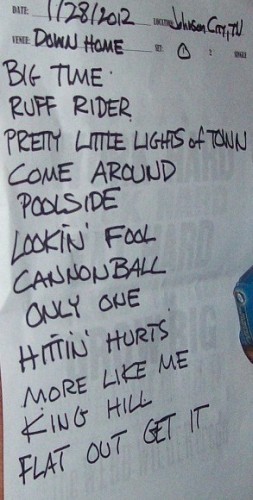 DATE: 1/28/2012 LOCATION: Johnson City, TN
VENUE: DOWN HOME SET: 1 2
BIG TIME
RUFF RIDER
PRETTY LITTLE LIGHTS of TOWN
COME AROUND
POOLSIDE
LOOKIN' FOOL
CANNONBALL
ONLY ONE
HITTIN' HURTS
MORE LIKE ME
KING HILL
FLAT OUT GET IT